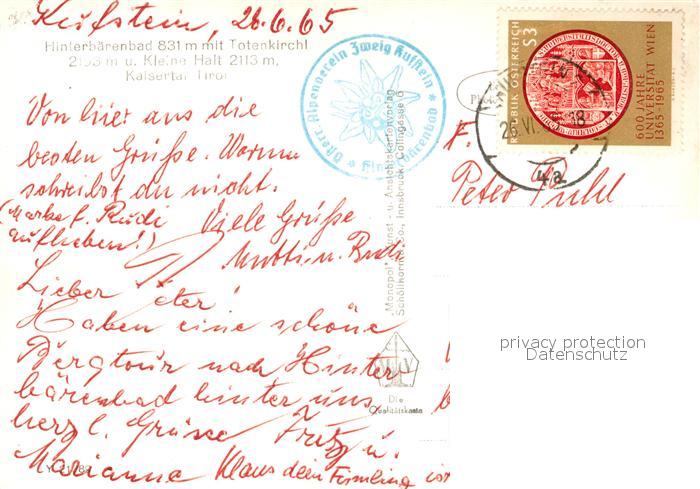 Kufstein, 26.6.65
Hinterbärenbad 831 m mit Totenkirchl
2193 m u. Kleine Halt 2113 m,
Kaisertal Tirol
Von hier aus die
besten Grüße. Warum
schreibst du nicht.
(Marke f. Rudi
aufheben!)
Viele Grüße
Mutti u. Rudi
Lieber Peter!
Haben eine schöne
Bergtour nach Hinter
bärenbad hinter uns
herzl. Grüsse Fritz u.
Marianne Klaus dein Firmling
Österr. Alpenverein Zweig Kufstein
Hinterbärenbad
"Monopol" Kunst- u. Ansichtskartenverlag
Schöllhorn & Co., Innsbruck, Colingasse
Die
Qualitätskarte
REPUBLIK ÖSTERREICH
S3
600 JAHRE
UNIVERSITÄT WIEN
1365-1965
26.VI.
4a
F.
Peter Puhl
privacy protection
Datenschutz